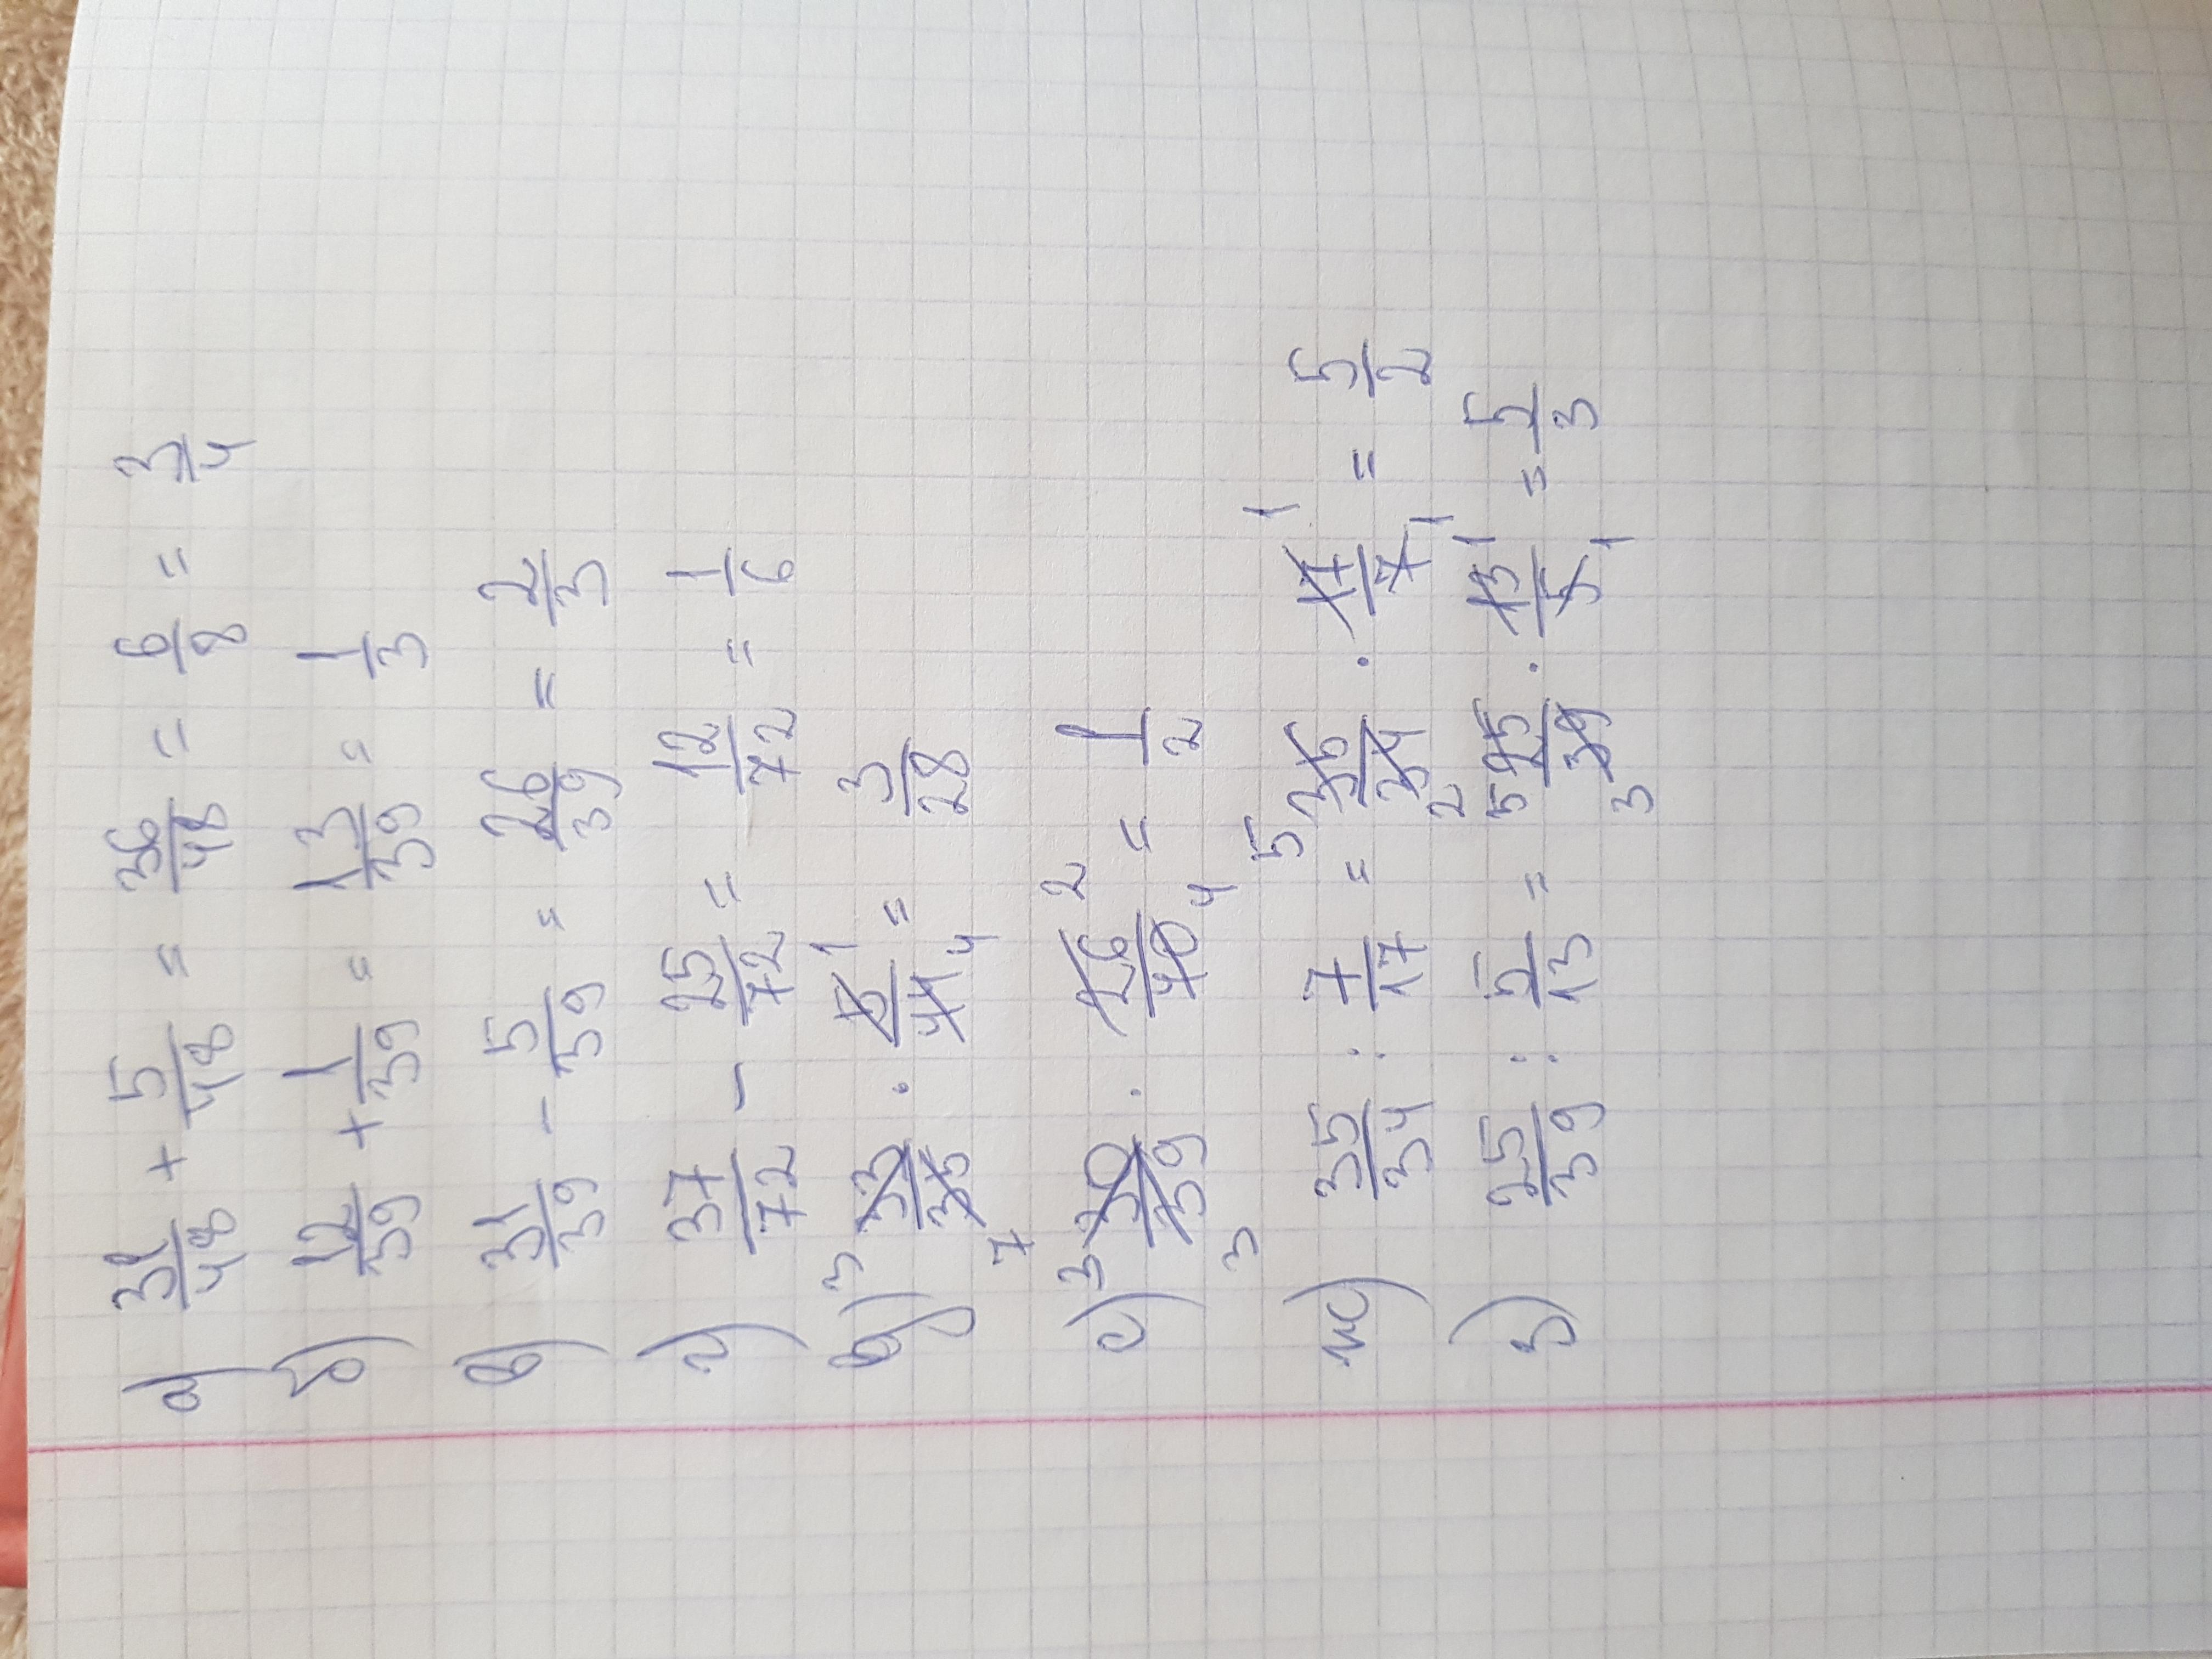 а) 31/48 + 5/48 = 36/48 = 6/8 = 3/4
б) 12/39 + 1/39 = 13/39 = 1/3
в) 31/39 - 5/39 = 26/39 = 2/3
г) 37/72 - 25/72 = 12/72 = 1/6
д) 3 33/35 7 · 5/44 1 4 = 3/28
е) 3 30/39 3 · 26/40 2 4 = 1/2
ж) 35/34 : 7/17 = 5 35/34 2 · 17/7 1 1 = 5/2
з) 25/39 : 5/13 = 5 25/39 3 · 13/5 1 1 = 5/3